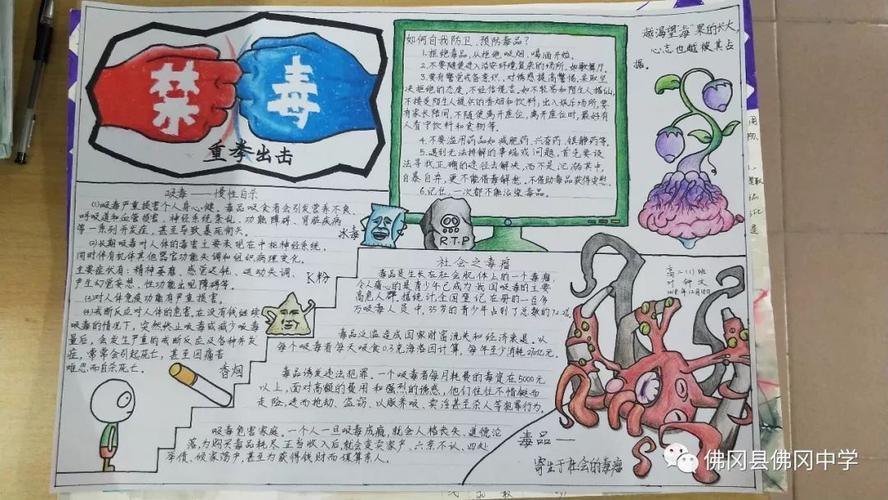 禁毒
重拳出击
如何自我防卫、预防毒品?
1.拒绝毒品,从拒绝吸烟、喝酒开始。
2.不要随便进入治安环境复杂的场所,如歌舞厅。
3.要有警觉戒备意识,对诱惑提高警惕,采取坚
决拒绝的态度,不轻信谎言。如不轻易和陌生人搭讪,
不接受陌生人提供的香烟和饮料,出入娱乐场所,要
有家长陪同,不随便离开座位,离开座位时,最好有
人看守饮料和食物等。
4.不要滥用药品如减肥药、兴奋药、镇静药等。
5.遇到无法排解的事端或问题,首先要设
法寻找正确的途径去解决,而不是沉溺其中,
自暴自弃,更不能借毒解愁。不借助毒品获得安慰。
6.记住,一次都不能沾染毒品。
越渴望“海”果的长大,
心志也越被其占
据。
吸毒——慢性自杀
⑴吸毒严重损害个人身心健。毒品吸食者会引发营养不良、
呼吸道和血管损害、神经系统紊乱、功能
障碍、肾脏疾病
等一系列并发症,甚至导致暴死街头。
⑵长期吸毒对人体的毒害主要表现在中枢神经系统,
同时伴有机体其他器官功能失调和组织病理变化。
主要症状有:精神萎靡、感觉迟钝、运动失调、
产生幻觉妄想、性功能出现障碍等。
⑶对人体免疫功能有严重损害。
⑷戒断反应对人体的危害,在没有继续
吸毒的情况下,突然终止吸毒或减少吸毒
量后,会发生严重的戒断反应及各种并发
症,常常会引起死亡,甚至因痛苦
难忍而自杀死亡。
冰毒
R.T.P
K粉
香烟
社会之毒瘤
毒品是生长在社会肌体上的一个毒瘤,
令人痛心的是青少年已成为我国吸毒的主要
高危人群,据统计全国登记在册的一百多
万吸毒人员中,35岁的青少年占到了总数的72.2%。
毒品泛滥造成国家财富流失和经济衰退。以
每个吸毒者每天吸食0.3克海洛因计算,每年至少消耗270亿元。
毒品诱发违法犯罪。一个吸毒者每月耗费的毒资在5000元
以上,面对高额的费用和强烈的诱惑,他们往往不惜铤而
走险,进而抢劫、盗窃、以贩养吸、卖淫甚至杀人等犯罪行为。
吸毒危害家庭。一个人一旦吸毒成瘾,就会人格丧失、道德沦
落,为购买毒品耗尽正当收入后,就会变卖家产,六亲不认,四处
举债,倾家荡产,甚至为获得钱财而谋算亲人。
高二(1)班
毒品——
寄生于社会的毒瘤
佛冈县佛冈中学